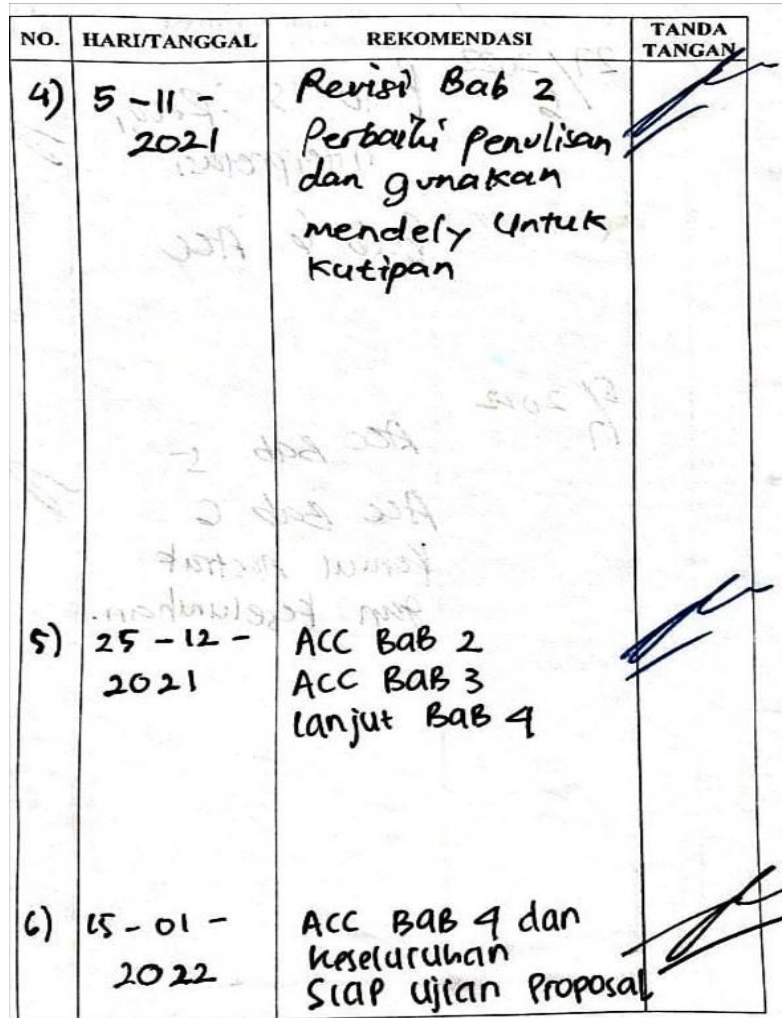 NO. HARI/TANGGAL REKOMENDASI TANDA TANGAN
4) 5-11- Revisi Bab 2
2021 Perbaiki Penulisan
dan gunakan
mendely Untuk
Kutipan
5) 25-12- ACC BaB 2
2021 ACC BaB 3
Lanjut BaB 4
6) 15-01- ACC BaB 4 dan
2022 Keseluruhan
Siap Ujian Proposal